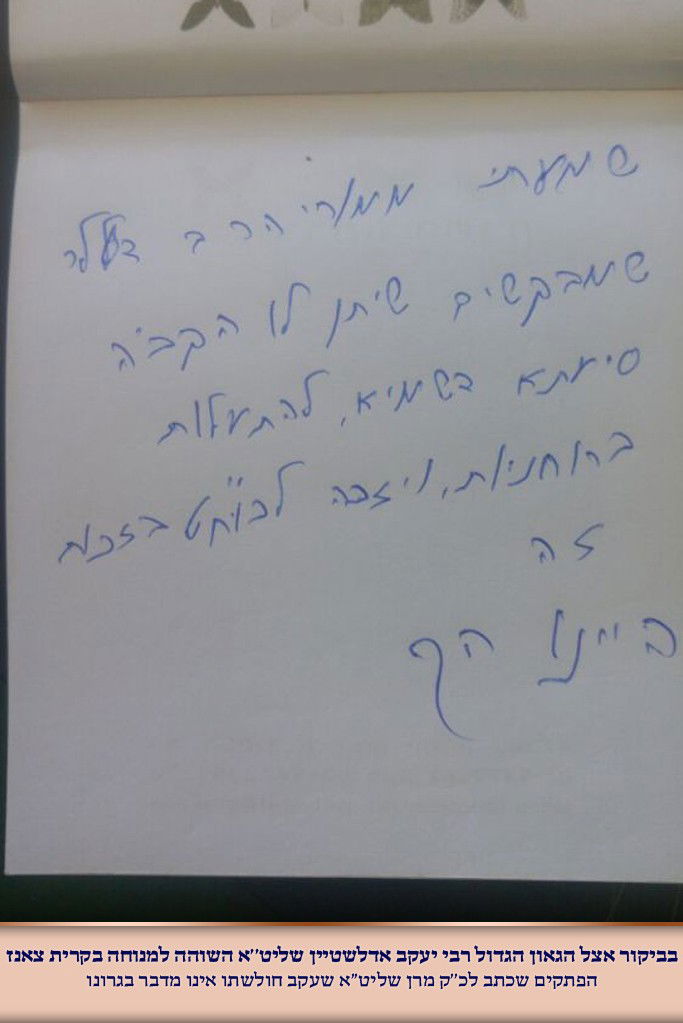 שמעתי ממורי הרב
שמבקשים שיתן לו הקב"ה
סיעתא דשמיא, להתעלות
ברוחניות, ויזכה לכוח"ט בזכות
זה
היינו הך
בביקור אצל הגאון הגדול רבי יעקב אדלשטיין שליט''א השוהה למנוחה בקרית צאנז
הפתקים שכתב לכ"ק מרן שליט"א שעקב חולשתו אינו מדבר בגרונו